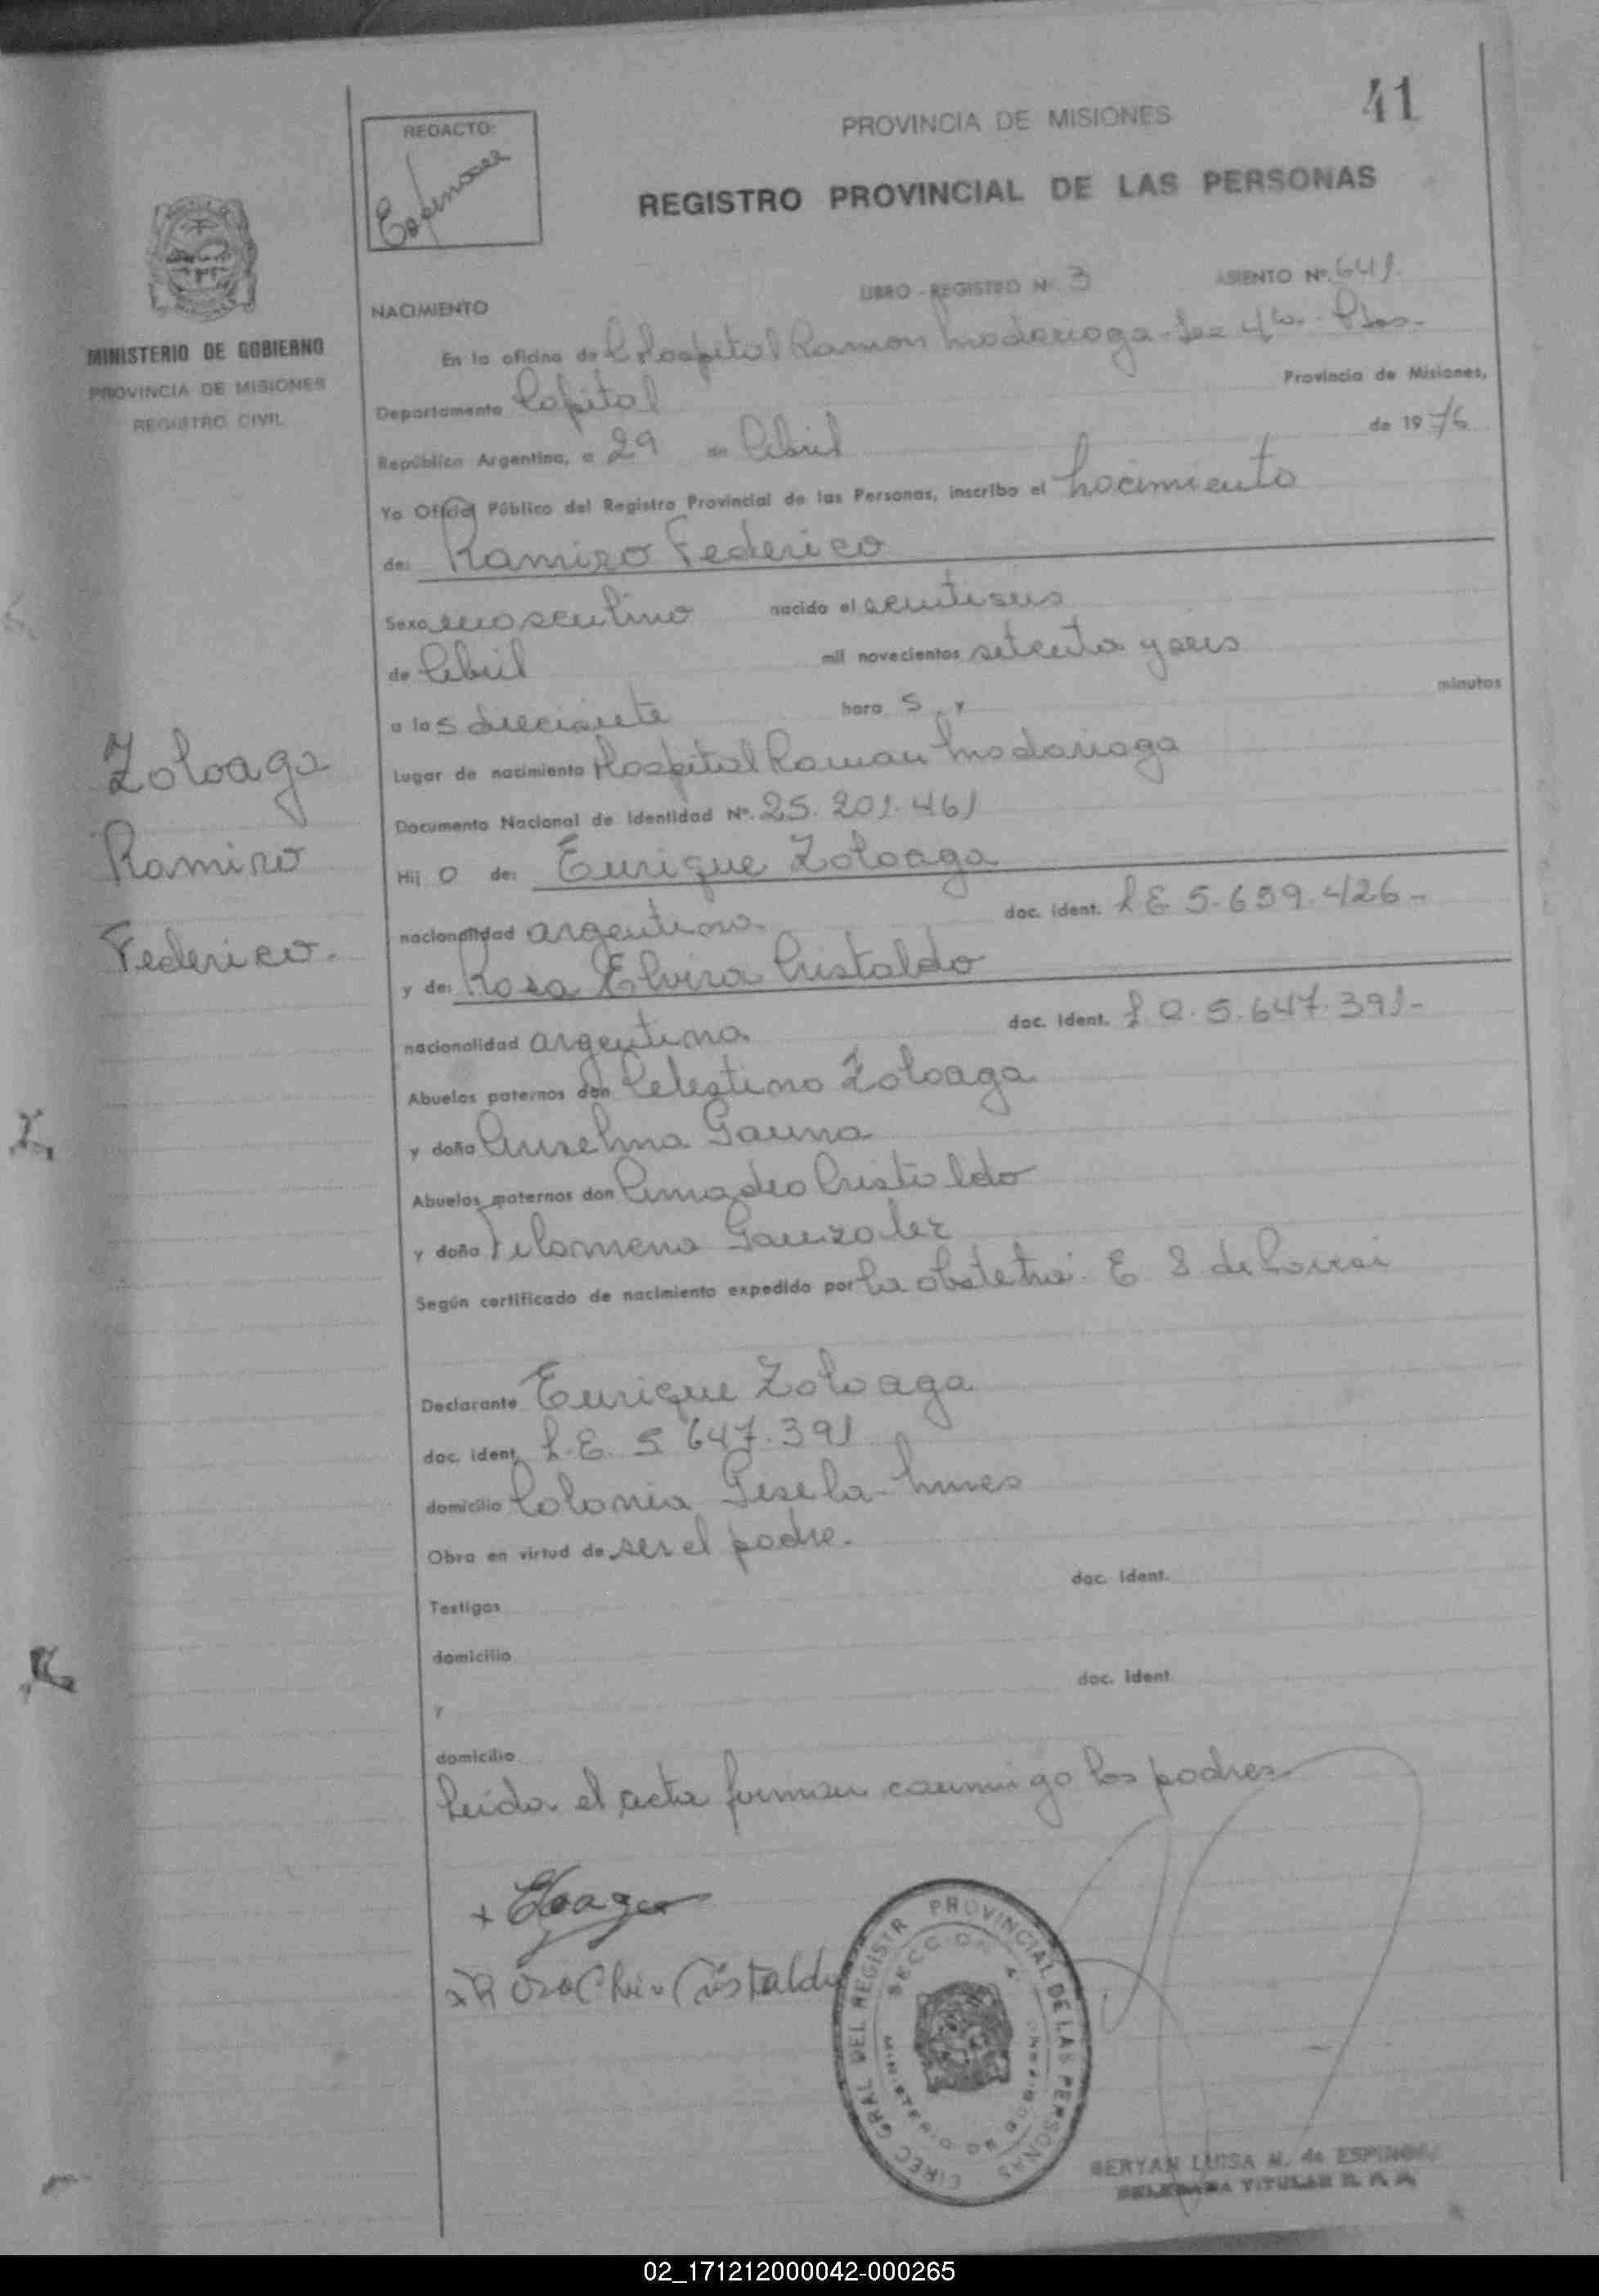 41
PROVINCIA DE MISIONES
REGISTRO PROVINCIAL DE LAS PERSONAS
REDACTO:
Espinosa
MINISTERIO DE GOBIERNO
PROVINCIA DE MISIONES
REGISTRO CIVIL
LIBRO - REGISTRO Nº 3 ASIENTO Nº 641
NACIMIENTO
En la oficina de Hospital Ramon Madariaga - Sec 4ta - Pdas -
Departamento Capital Provincia de Misiones,
República Argentina, a 29 de Abril de 1976
Yo Oficial Público del Registro Provincial de las Personas, inscribo el nacimiento
de: Ramiro Federico
Sexo masculino nacido el veintiseis
de Abril mil novecientos setenta y seis
a las diecisiete hora s y minutos
Lugar de nacimiento Hospital Ramon Madariaga
Documento Nacional de Identidad Nº. 25.201.461
Hij o de: Enrique Zoloaga
nacionalidad argentina doc. ident. L E 5.659.426 -
y de: Rosa Elvira Cristaldo
nacionalidad argentina doc. ident. L C. 5.647.391 -
Abuelos paternos don Celestino Zoloaga
y doña Anselma Gauna
Abuelos maternos don Amadeo Cristaldo
y doña Filomena Gonzalez
Según certificado de nacimiento expedido por la obstetra E S de
Declarante Enrique Zoloaga
doc. ident. L.E. 5 647.391
domicilio Colonia Gisela
Obra en virtud de ser el padre.
doc. ident.
Testigos
domicilio
doc. ident.
y
domicilio
Leida el acta firman conmigo los padres
Zoloaga
Ramiro
Federico.
x
x Rosa Cristaldo
DIREC GRAL DEL REGISTR PROVINCIAL DE LAS PERSONAS
SECCION 4
MINISTERIO DE GOBIERNO
BERYAN LUISA M. de ESPINOSA
DELEGADA TITULAR R. P. P.
02_171212000042-000265